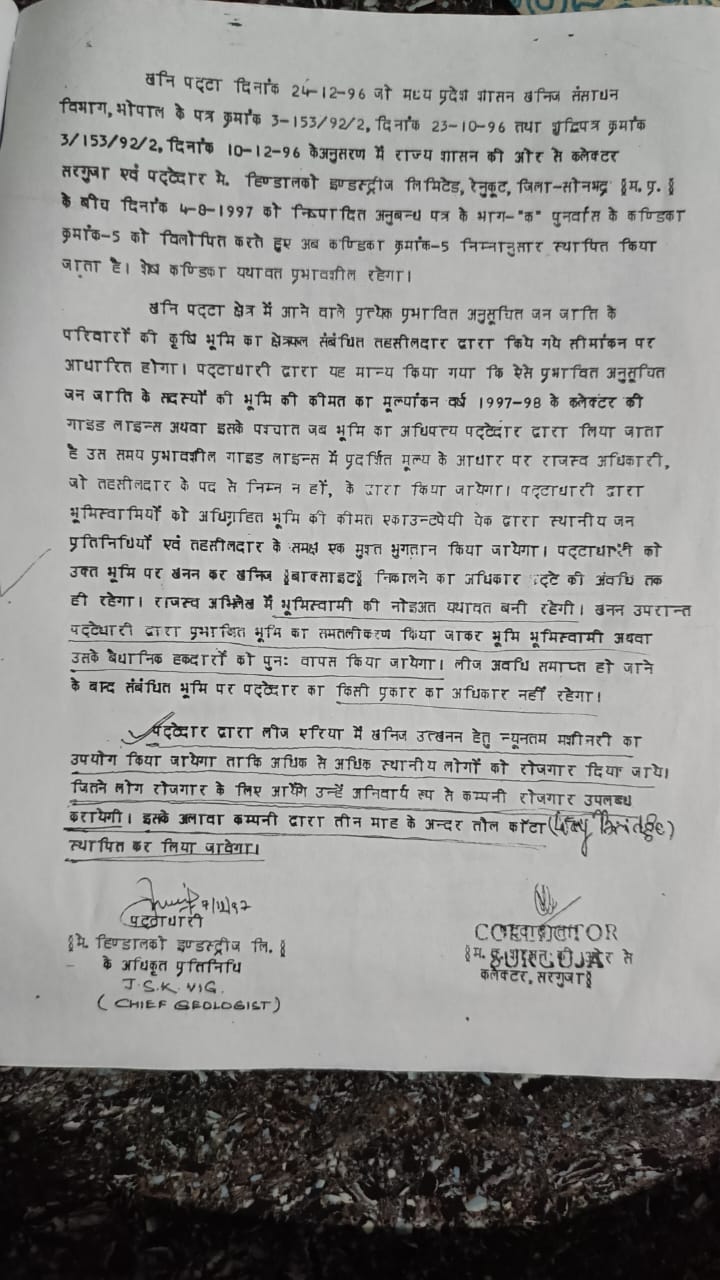 खनि पट्टा दिनांक 24-12-96 जो मध्य प्रदेश शासन खनिज संसाधन
विभाग, भोपाल के पत्र क्रमांक 3-153/92/2, दिनांक 23-10-96 तथा शुद्धिपत्र क्रमांक
3/153/92/2, दिनांक 10-12-96 के अनुसरण में राज्य शासन की ओर से कलेक्टर
सरगुजा एवं पट्टेदार मे. हिण्डालको इण्डस्ट्रीज लिमिटेड, रेनुकूट, जिला-सोनभद्र §म. प्र. §
के बीच दिनांक 4-8-1997 को निष्पादित अनुबन्ध पत्र के भाग-"क" पुनर्वास के कण्डिका
क्रमांक-5 को विलोपित करते हुए अब कण्डिका क्रमांक-5 निम्नानुसार स्थापित किया
जाता है। शेष कण्डिका यथावत प्रभावशील रहेगा।
खनि पट्टा क्षेत्र में आने वाले प्रत्येक प्रभावित अनुसूचित जन जाति के
परिवारों की कृषि भूमि का क्षेत्रफल संबंधित तहसीलदार द्वारा किये गये सीमांकन पर
आधारित होगा। पट्टाधारी द्वारा यह मान्य किया गया कि ऐसे प्रभावित अनुसूचित
जन जाति के सदस्यों की भूमि की कीमत का मूल्यांकन वर्ष 1997-98 के कलेक्टर की
गाइड लाइन्स अथवा इसके पश्चात जब भूमि का अधिपत्य पट्टेदार द्वारा लिया जाता
है उस समय प्रभावशील गाइड लाइन्स में प्रदर्शित मूल्य के आधार पर राजस्व अधिकारी,
जो तहसीलदार के पद से निम्न न हों, के द्वारा किया जायेगा। पट्टाधारी द्वारा
भूमिस्वामियों को अधिग्रहित भूमि की कीमत एकाउन्टपेयी चेक द्वारा स्थानीय जन
प्रतिनिधियों एवं तहसीलदार के समक्ष एक मुश्त भुगतान किया जायेगा। पट्टाधारी को
उक्त भूमि पर खनन कर खनिज §बाक्साइट§ निकालने का अधिकार पट्टे की अवधि तक
ही रहेगा। राजस्व अभिलेख में भूमिस्वामी की नोइअत यथावत बनी रहेगी। खनन उपरान्त
पट्टेधारी द्वारा प्रभावित भूमि का समतलीकरण किया जाकर भूमि भूमिस्वामी अथवा
उसके वैधानिक हकदारों को पुनः वापस किया जायेगा। लीज अवधि समाप्त हो जाने
के बाद संबंधित भूमि पर पट्टेदार का किसी प्रकार का अधिकार नहीं रहेगा।
पट्टेदार द्वारा लीज एरिया में खनिज उत्खनन हेतु न्यूनतम मशीनरी का
उपयोग किया जायेगा ताकि अधिक से अधिक स्थानीय लोगों को रोजगार दिया जाये।
जितने लोग रोजगार के लिए आयेंगे उन्हें अनिवार्य रूप से कम्पनी रोजगार उपलब्ध
करायेगी। इसके अलावा कम्पनी द्वारा तीन माह के अन्दर तौल काँटा (Way Bridge)
स्थापित कर लिया जावेगा।
पट्टाधारी
§मे. हिण्डालको इण्डस्ट्रीज लि. §
के अधिकृत प्रतिनिधि
J.S.K. VIG.
(CHIEF GEOLOGIST)
SURGUJA
§म. प्र. शासन की ओर से
कलेक्टर, सरगुजा§